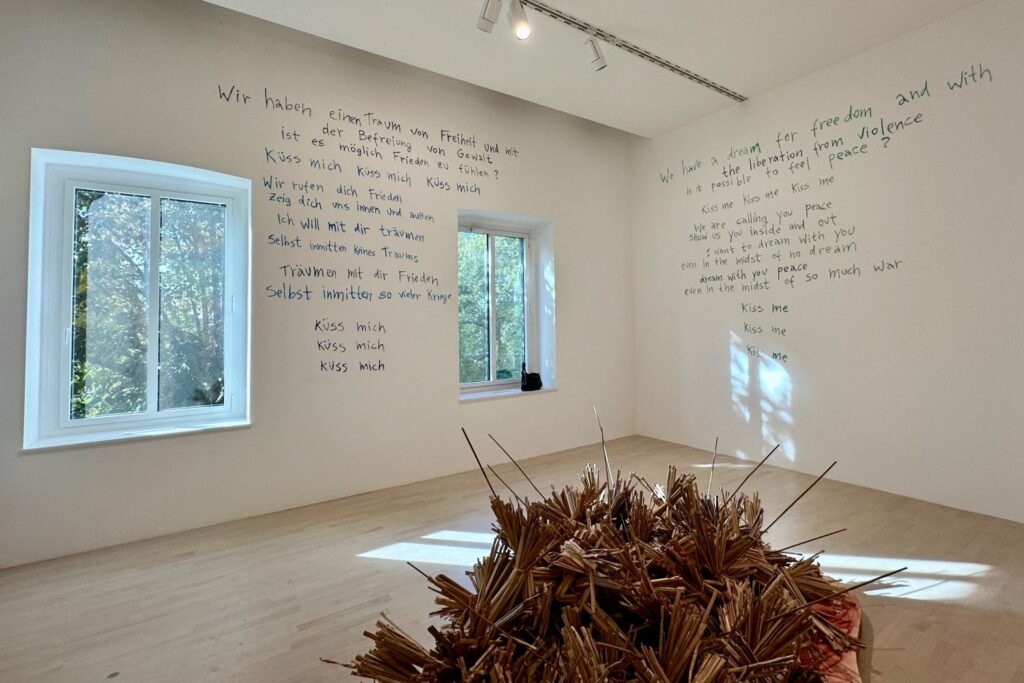 Wir haben einen Traum von Freiheit und mit
der Befreiung von Gewalt
ist es möglich Frieden zu fühlen?
Küss mich Küss mich Küss mich
Wir rufen dich Frieden
Zeig dich uns innen und außen
Ich will mit dir träumen
Selbst inmitten keines Traums
Träumen mit dir Frieden
Selbst inmitten so vieler Kriege
Küss mich
Küss mich
Küss mich
We have a dream for freedom and with
the liberation from violence
is it possible to feel peace?
Kiss me Kiss me Kiss me
We are calling you peace
show us you inside and out
I want to dream with you
even in the midst of no dream
dream with you peace
even in the midst of so much war
Kiss me
Kiss me
Kiss me